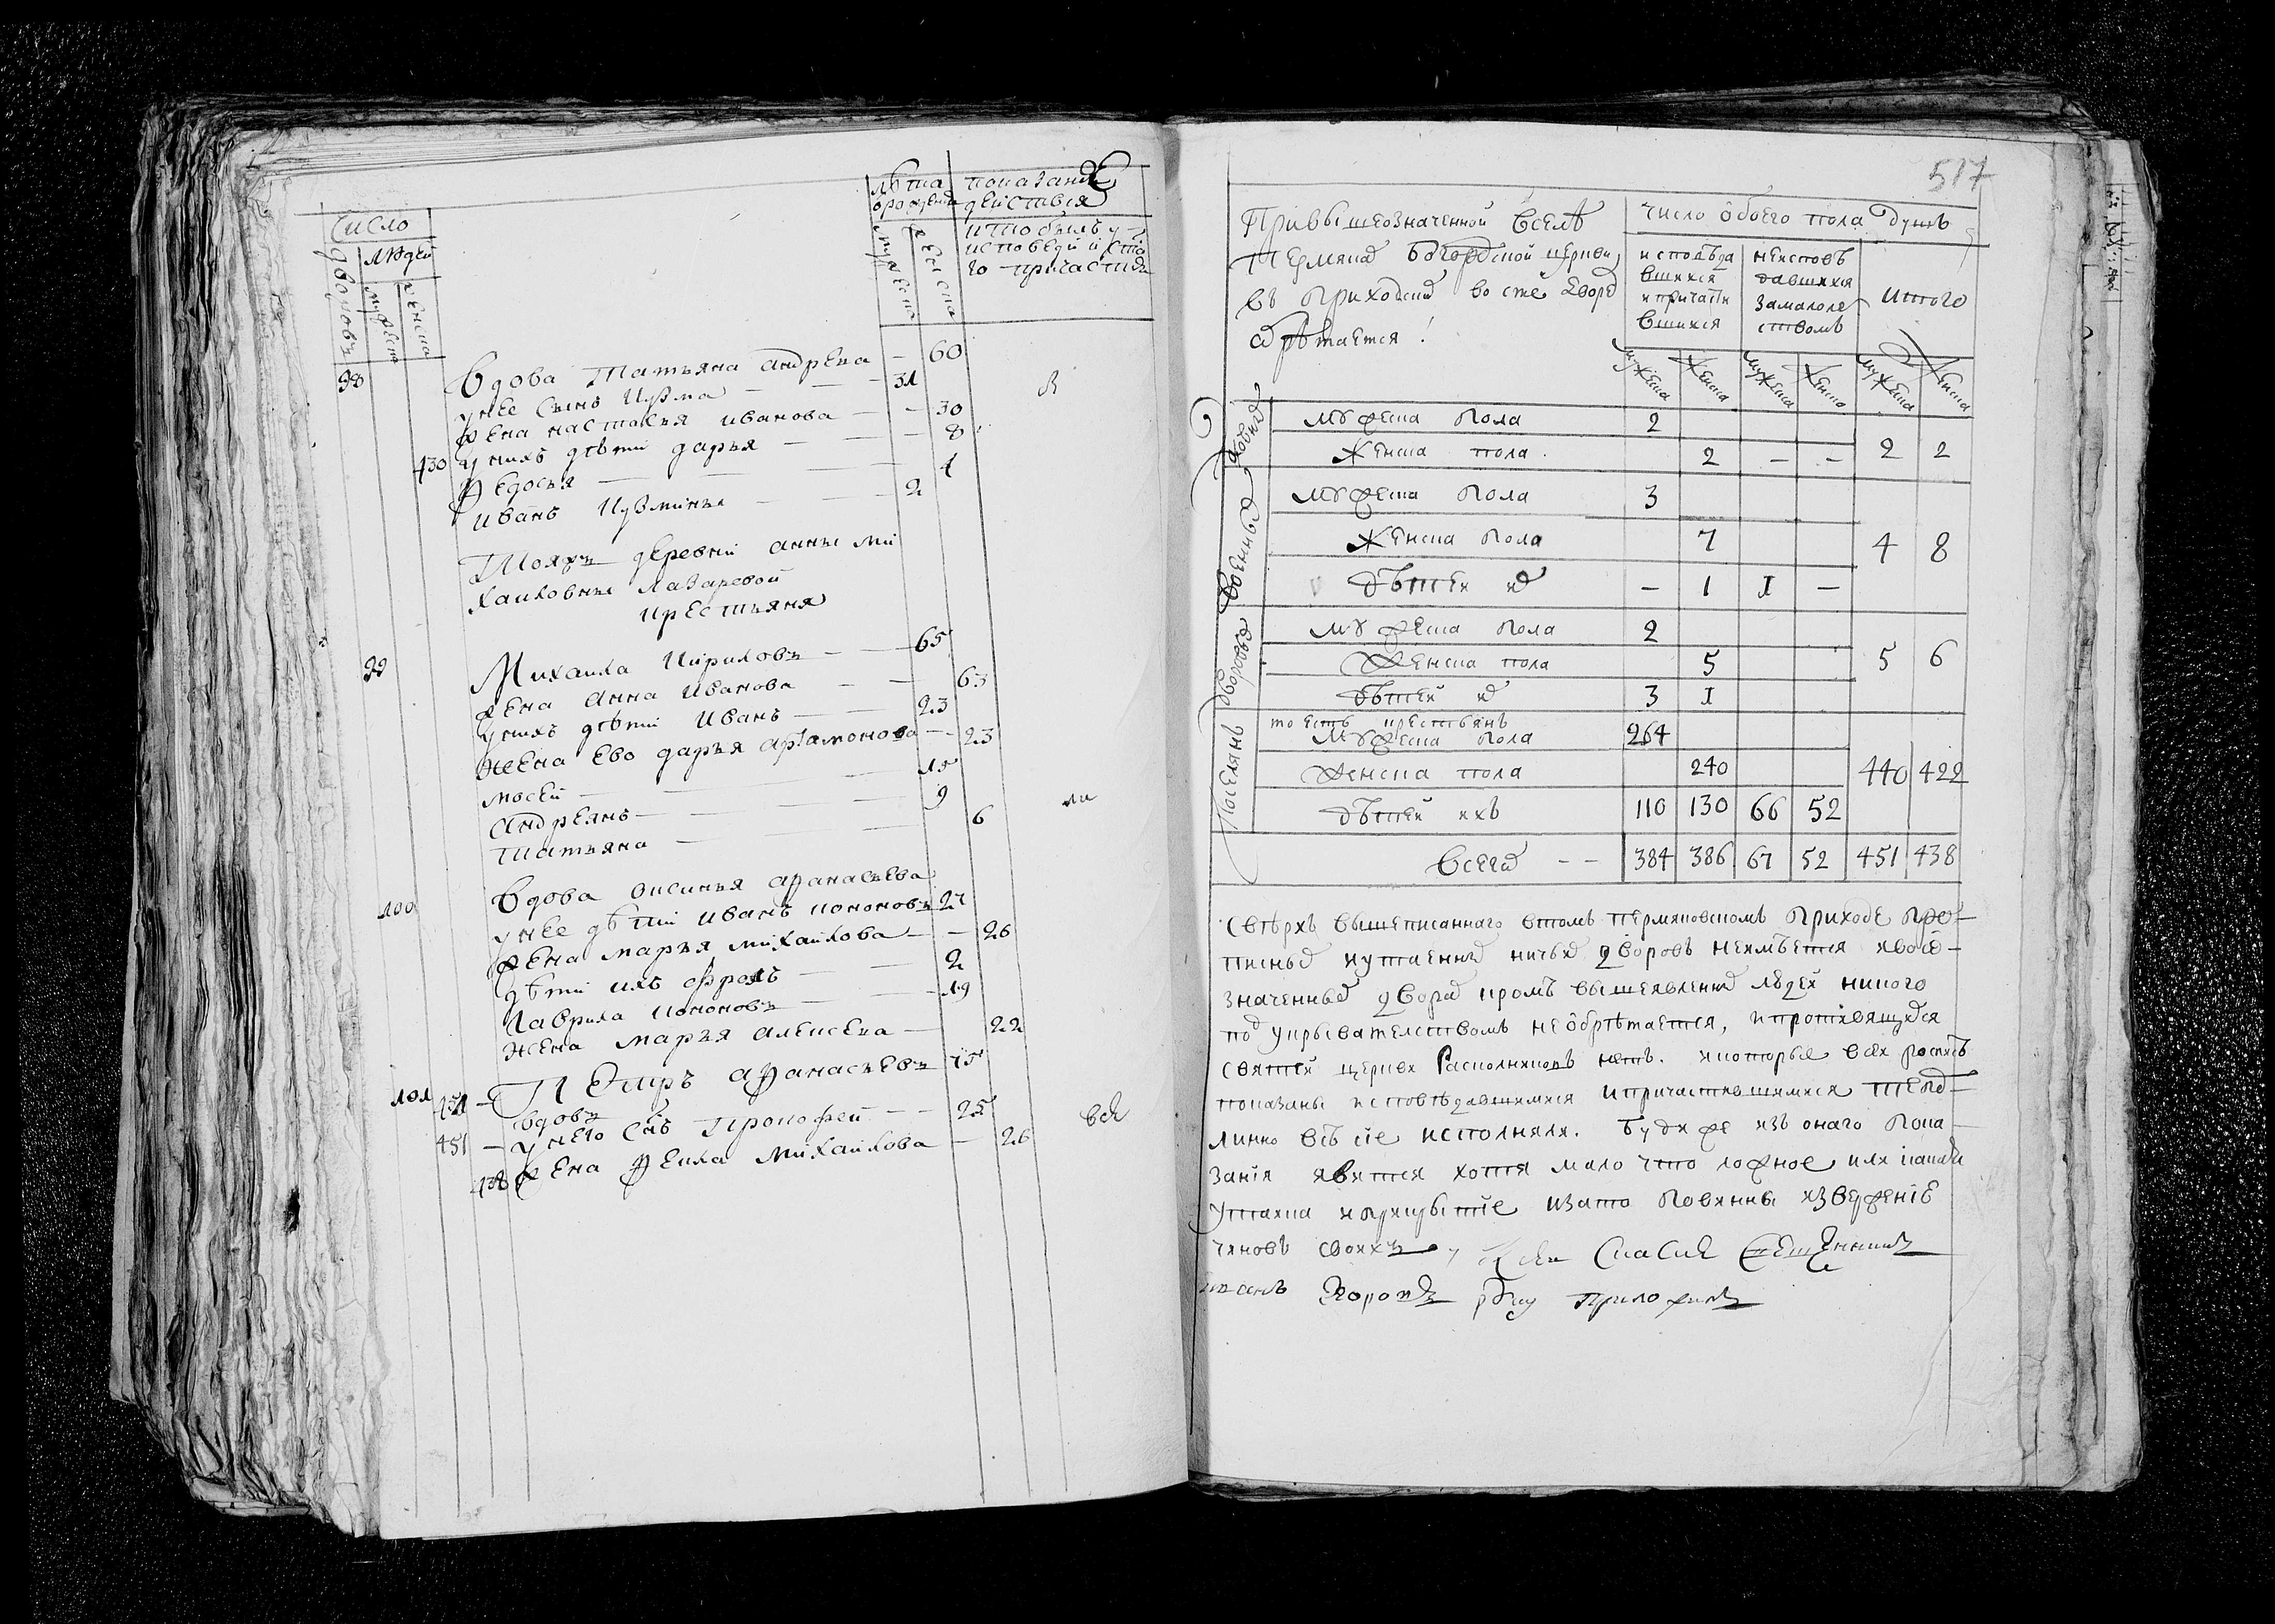 Число
людей
дворовъ
мужеска
женска
лѣта
орожденія
мужеска
женска
показаніе
действія
кто былъ у
исповеди и ста
го причастія
98
Вдова Татьяна андреева — 60
унее сынъ Кузма — — — 31
жена настасья иванова — — 30
430 унихъ дѣти дарья — — — 8
Федосья — — 4
иванъ Кузминъ — — 2
Тояжъ деревни анны ми
хаиловны лазаревой
крестьяня
99 Михаила Кириловъ — — 65
жена анна иванова — — 63
унихъ дѣти иванъ — — 23
жена ево дарья артамонова — — 23
мосей — — 15
андреянъ — — 9
татьяна — — 6
100 Вдова аксинья афанасьева
унее дѣти иванъ кононовъ 27
жена марья михаилова — — 26
дѣти ихъ фролъ — — 2
гаврила кононовъ — 19
жена марья алексеева — 22
101 Петръ афанасьевъ 75
вдовъ
451 — унего снъ Прокофей — — 25
438 жена Фекла михаилова — 26
всѣ
517
Привышеозначенной вселѣ
Термяка Богородской церкви,
въ приходскихъ во сте дворахъ
обрѣтается!
число обоего пола душъ
исповѣда
вшихся
и причасти
вшихся
неисповѣ
давшихся
замалоле
ствомъ
итого
мужеска женска мужеска женска мужеска женска
духовныхъ
мужеска пола 2
женска пола 2 — — 2 2
военныхъ
мужеска пола 3
женска пола 7 4 8
дѣтей ихъ — 1 1 —
дворовыхъ
мужеска пола 2
женска пола 5 5 6
дѣтей ихъ 3 1
поселянъ
то есть крестьянъ
мужеска пола 264
женска пола 240 440 422
дѣтей ихъ 110 130 66 52
всего — — 384 386 67 52 451 438
Сверхъ вышеписаннаго втомъ термяковскомъ приходе про
писныхъ иутаенныхъ ничьихъ дворовъ неимѣется ивоо
значенныхъ дворахъ кромѣ вышеявленныхъ людей никого
подукрывателствомъ необрѣтается, ипротивящихся
святей церкви расколниковъ нетъ. икоторые всей росписѣ
показаны исповѣдавшимися ипричастившимися те под
линно всѣ сіе исполняли. буди же изъ онаго пока
занія явится хотя мало что ложное или какая
утайка иприкрытіе изато повинны изверженіе
чиновъ своихъ
иванъ Егоровъ руку приложилъ